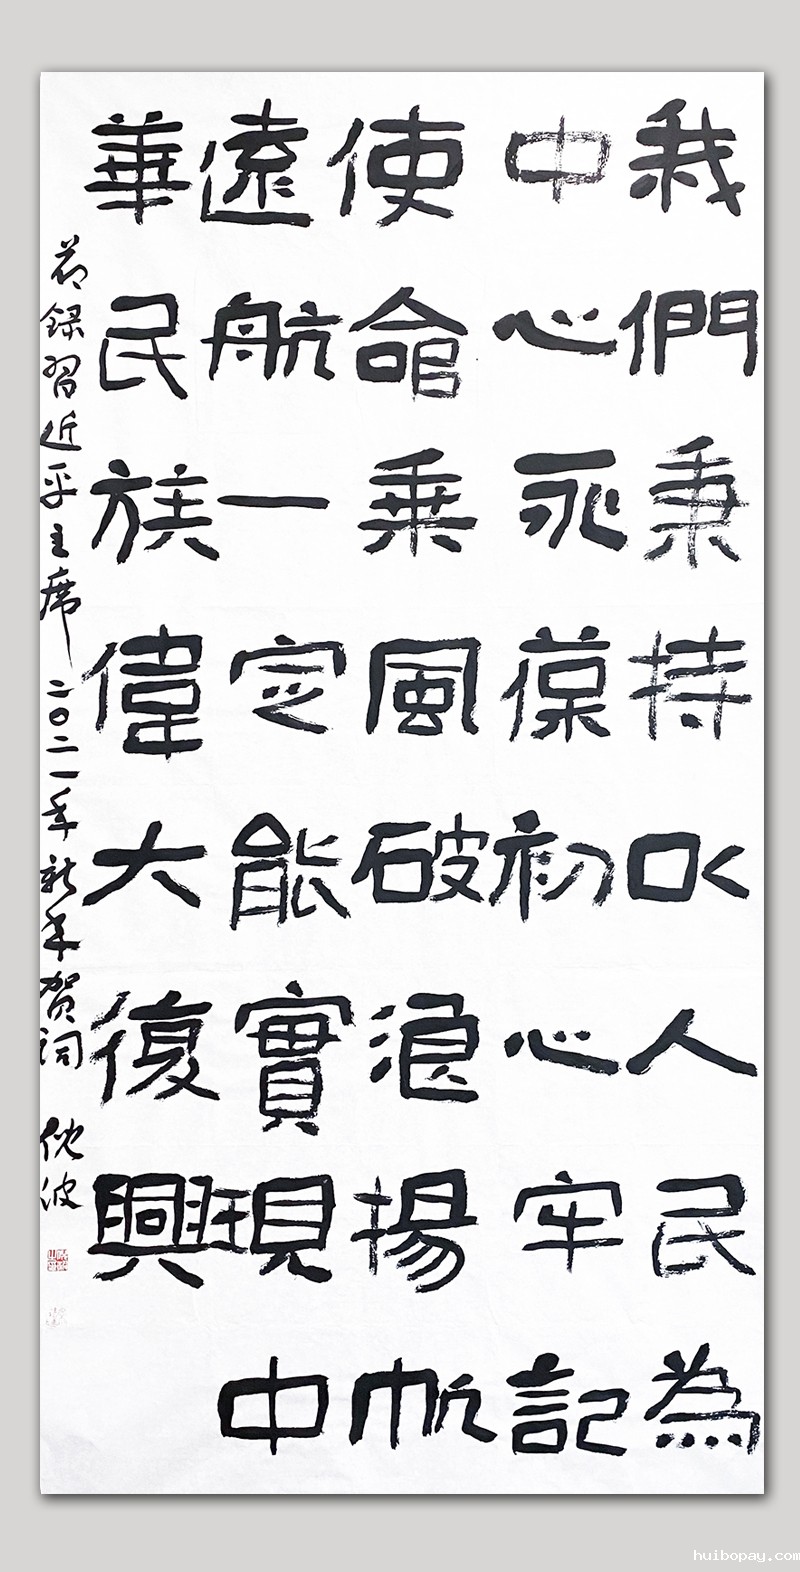 我們秉持以人民為
中心永葆初心牢記
使命乘風破浪揚帆
遠航一定能實現中
華民族偉大復興
节録習近平主席二〇二一年新年贺词 波
huibopay.com